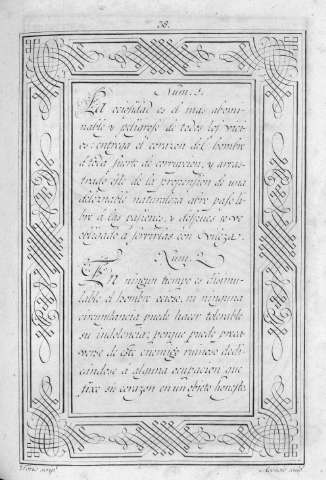 38.
Num. 1.
La ociosidad es el mas abomi-
nable y peligroso de todos los vici-
os: entrega el corazon del hombre
á toda suerte de corrupcion, y arras-
trado este de la propension de una
deleznable naturaleza abre paso li-
bre á las pasiones, y despues se ve
obligado á servirlas con vileza.
Num. 2
En ningun tiempo es disimu-
lable el hombre ocioso, ni ninguna
circunstancia puede hacer tolerable
su indolencia: porque puede preca-
verse de este enemigo ruinoso dedi-
candose á alguna ocupacion que
fixe su corazon en un objeto honesto.